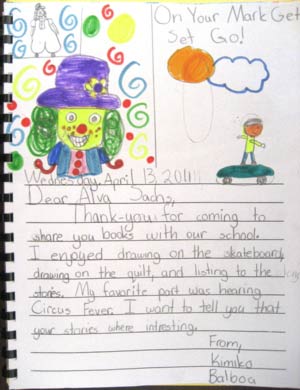 On Your Mark Get
Set Go!
Wednesday, April 13, 2011
Dear Alva Sachs,
Thank-you for coming to
share you books with our school.
I enjoyed drawing on the skateboard,
drawing on the quilt, and listing to the
stories. My favorite part was hearing
Circus Fever. I want to tell you that
your stories where intresting.
From,
Kimiko
Balboa